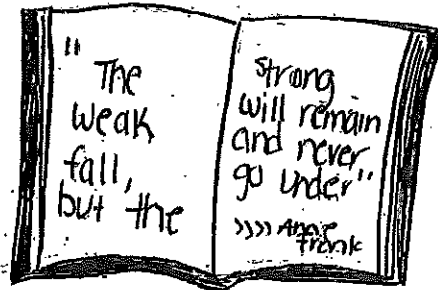 "
The
weak
fall,
but the
strong
will remain
and never
go under"
>>>> Anne
Frank